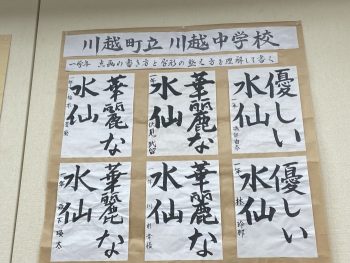 川越町立 川越中学校
一学年 点画の書き方と字形の整え方を理解して書く
優しい
水仙
一年
華麗な
水仙
一年
華麗な
水仙
一年
優しい
水仙
一年
華麗な
水仙
華麗な
水仙
一年